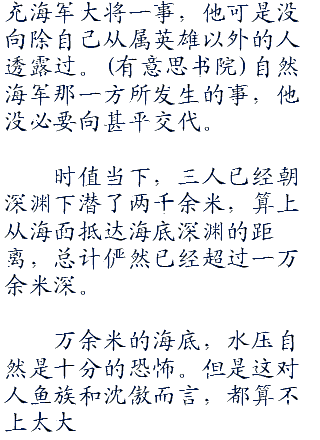 充海军大将一事，他可是没
向除自己从属英雄以外的人
透露过。(有意思书院)自然
海军那一方所发生的事，他
没必要向甚平交代。
时值当下，三人已经朝
深渊下潜了两千余米，算上
从海西抵达海底深渊的距
离，总计俨然已经超过一万
余米深。
万余米的海底，水压自
然是十分的恐怖。但是这对
人鱼族和沈傲而言，都算不
上太大